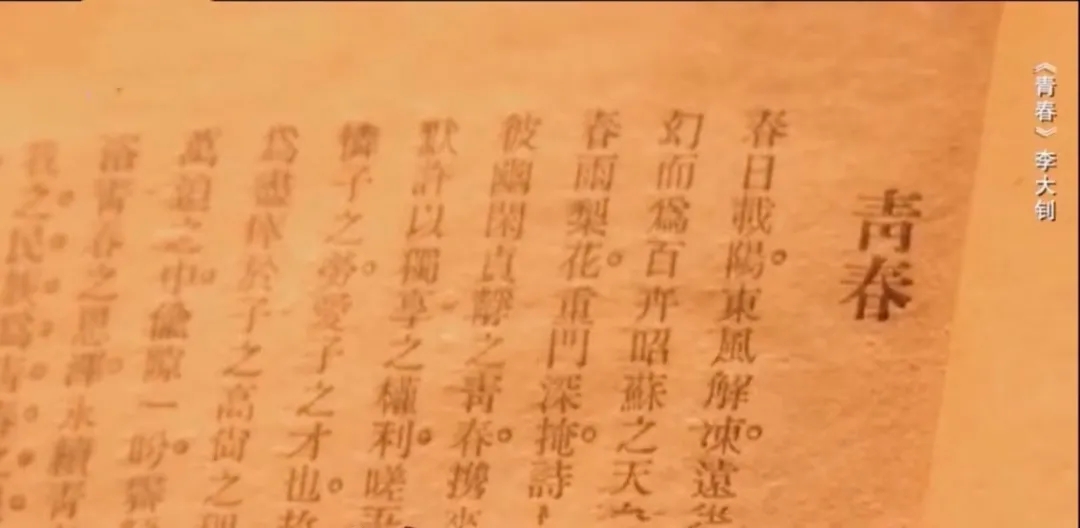 《青春》李大钊
靑春
春日載陽。東風解凍。遠
幻而爲百卉昭蘇之天
春雨梨花。重門深掩。詩
彼幽閑貞靜之靑春。攜
默許以獨享之權利。嗟吾
憐子之勞。愛子之才也。
爲盡瘁於子之高尙之理
萬迫之中。偸諒一盼。
浴靑春之恩澤。永續靑
我之。民族爲靑春之